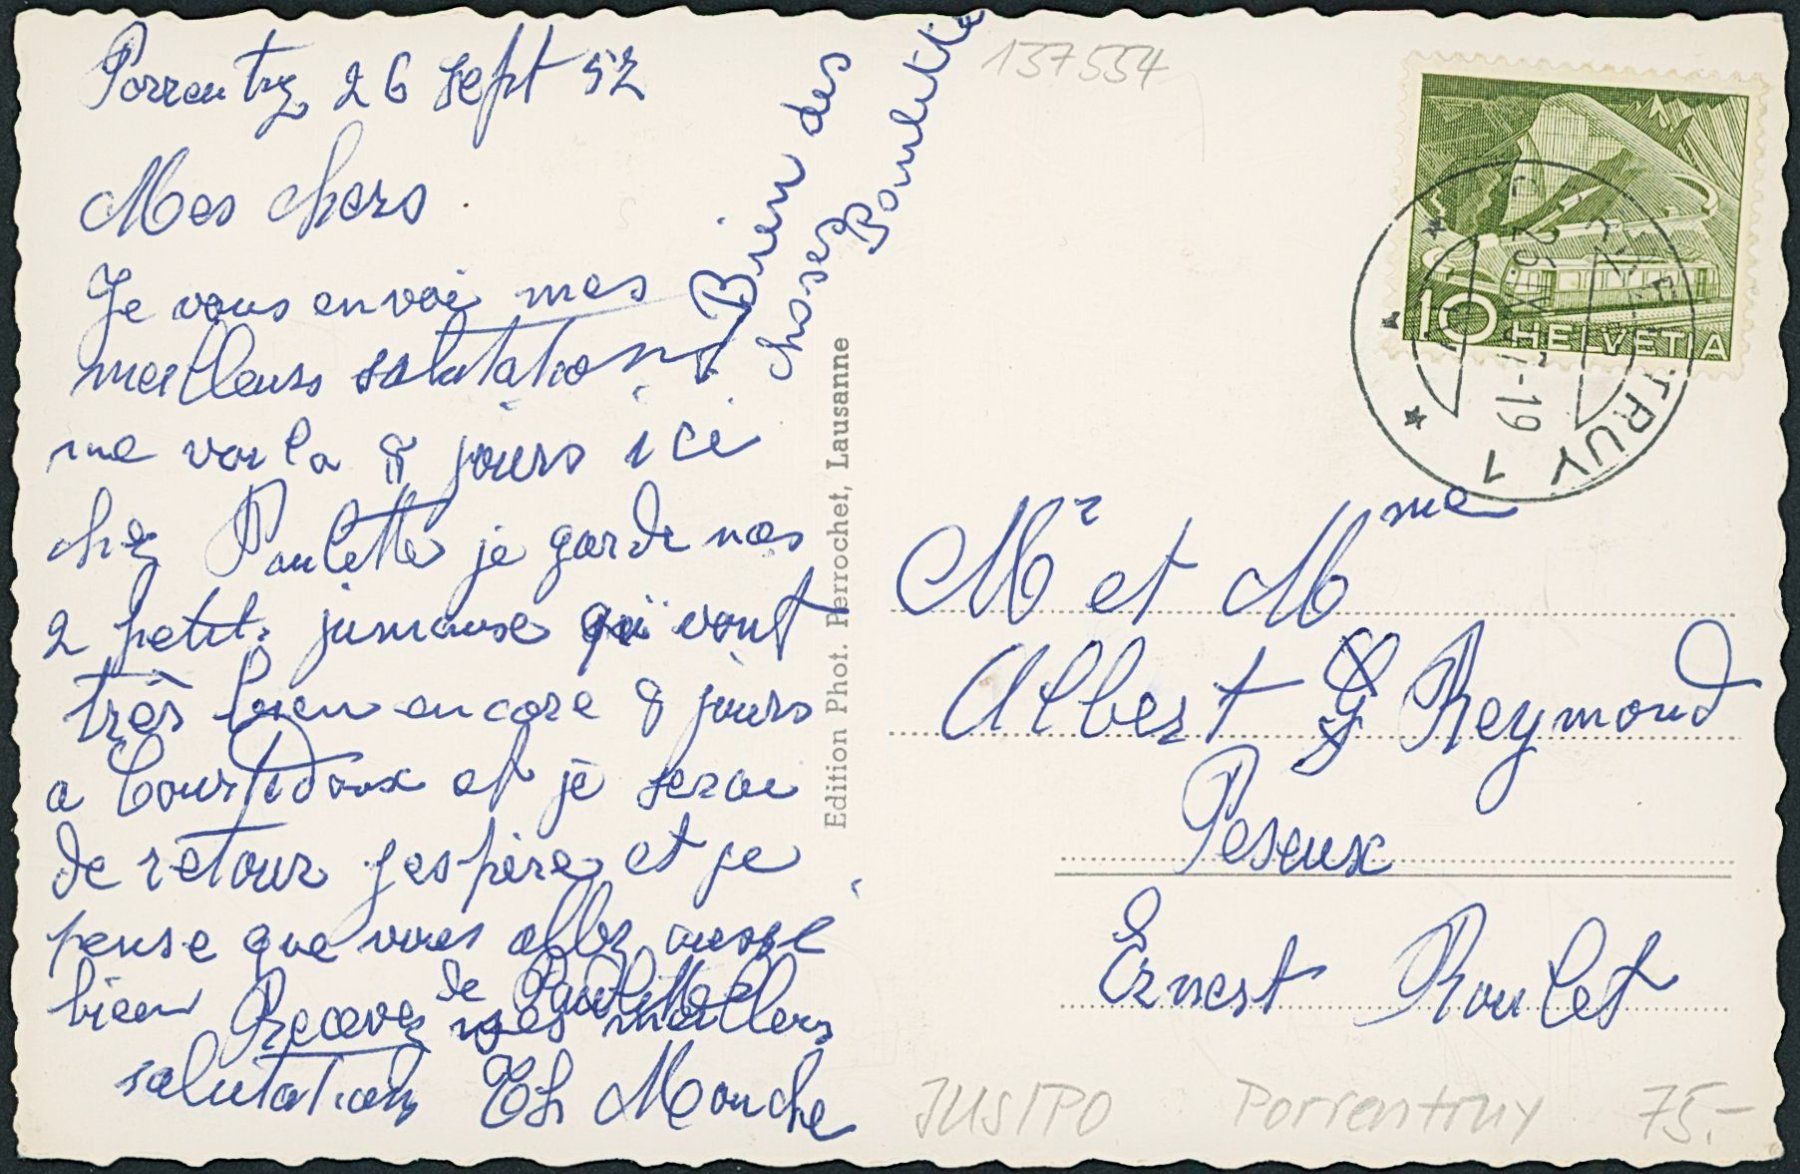 Porrentruy 26 sept 52
Mes chers
Je vous envoi mes
meilleurs salutations
me voila 8 jours ici
chez Paulette je garde nos
2 petit jumeause qui vont
très bien encore 8 jours
a Courtedoux et je serai
de retour j'espère et je
pense que vous allez aussi
bien Recevez de Paulette
mes meillers
salutations Th Mouche
Bien des
choses
Paulette
137554
10 HELVETIA
TRUY 1
Edition Phot. Perrochet, Lausanne
Mr et Mme
Albert Reymond
Peseux
Ernest Roulet
JUS/PO Porrentruy 75.-